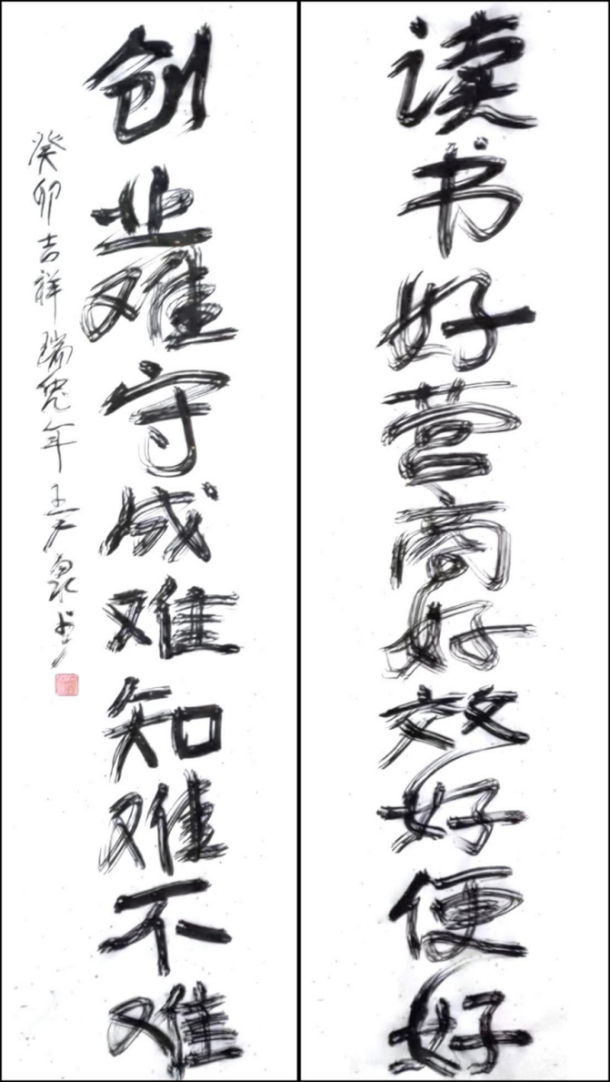 读书好营商好效好便好
创业难守成难知难不难
癸卯吉祥瑞兔年王天泉书